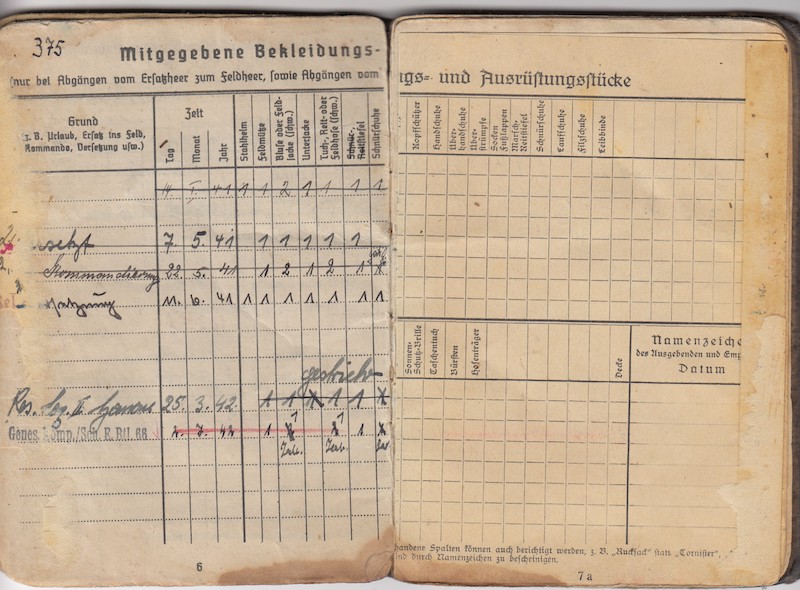 375
Mitgegebene Bekleidungs-
(nur bei Abgängen vom Ersatzheer zum Feldheer, sowie Abgängen vom
Grund
z. B. Urlaub, Ersatz ins Feld,
Kommando, Versetzung usw.)
Zeit
Tag
Monat
Jahr
Stahlhelm
Feldmütze
Bluse oder Feld-
jacke (schw.)
Unterjacke
Tuch-, Reit- oder
Feldhose (schw.)
Schnür-,
Reitstiefel
Schnürschuhe
I 41 1 1 2 1 1 1 1
setzt 7. 5. 41 1 1 1 1 1
Kommandierung 22. 5. 41 1 2 1 2 1
setzung 11. 6. 41 1 1 1 1 1 1 1
gestrichen
Res. Laz. II Hanau 25. 3. 42 1 1 1 1
Genes. Komp./Sch. E. Btl. 68 2. 7. 42 1 1
6
gs- und Ausrüstungsstücke
Kopfschützer
Handschuhe
Über-
handschuhe
Über-
strümpfe
Socken
Fußlappen
Marsch-
Reitstiefel
Schnürschuhe
Laufschuhe
Filzschuhe
Leibbinde
Sonnen-
Schutz-Brille
Taschentuch
Bürsten
Hosenträger
Decke
Namenzeiche
des Ausgebenden und Emp
Datum
handene Spalten können auch berichtigt werden, z. B. „Rucksack" statt „Tornister",
nd durch Namenzeichen zu bescheinigen.
7 a